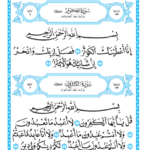 سُورَةُ الْكَوْثَرِ
بِسْمِ اللَّهِ الرَّحْمَٰنِ الرَّحِيمِ
إِنَّا أَعْطَيْنَاكَ الْكَوْثَرَ فَصَلِّ لِرَبِّكَ وَانْحَرْ
إِنَّ شَانِئَكَ هُوَ الْأَبْتَرُ
سُورَةُ الْكَافِرُونَ
بِسْمِ اللَّهِ الرَّحْمَٰنِ الرَّحِيمِ
قُلْ يَا أَيُّهَا الْكَافِرُونَ لَا أَعْبُدُ مَا تَعْبُدُونَ
وَلَا أَنْتُمْ عَابِدُونَ مَا أَعْبُدُ وَلَا أَنَا عَابِدٌ مَا عَبَدْتُمْ
وَلَا أَنْتُمْ عَابِدُونَ مَا أَعْبُدُ لَكُمْ دِينُكُمْ وَلِيَ دِينِ